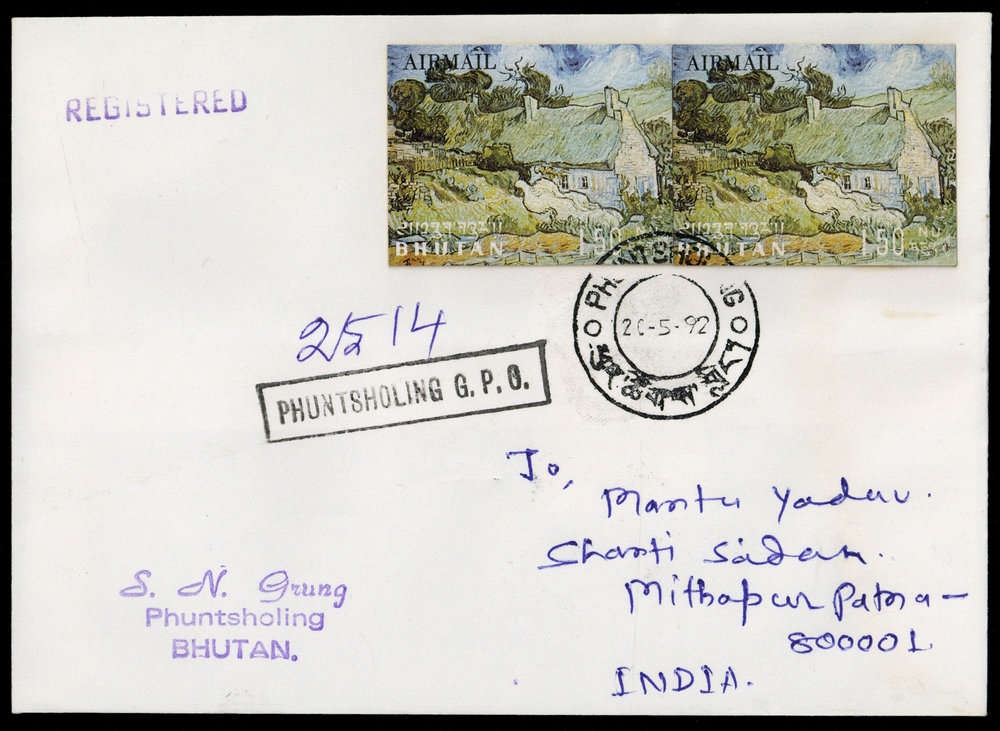 REGISTERED
AIRMAIL
AIRMAIL
BHUTAN 1.50
BHUTAN 1.50 NU
20-5-92
2514
PHUNTSHOLING G. P. O.
To,
Mantu Yadav.
Shanti Sadan.
Mithapur Patna -
800001
INDIA.
S. N. Grung
Phuntsholing
BHUTAN.